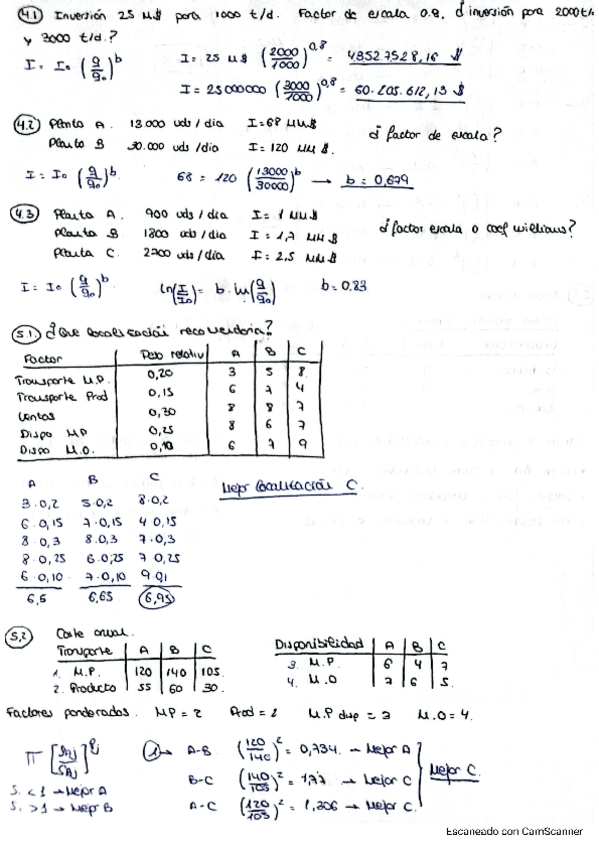 4.1 Inversión 25 M$ para 1000 t/d. Factor de escala 0.8, ¿inversión para 2000 t/d
y 3000 t/d.?
I = I₀ (q/q₀)^b   I = 25 M$ (2000/1000)^0,8 = 43527528,16 $
I = 25000000 (3000/1000)^0,8 = 60.205.612,13 $
4.2 Planta A. 13000 uds/dia I = 68 MM$
Planta B 30.000 uds/dia I = 120 MM$. ¿factor de escala?
I = I₀ (q/q₀)^b.   68 = 120 (13000/30000)^b → b = 0,679
4.3 Planta A. 900 uds/dia I = 1 MM$
Planta B 1800 uds/dia I = 1,7 MM$ ¿factor escala o coef williams?
Planta C. 2700 uds/dia I = 2,5 MM$
I = I₀ (q/q₀)^b   ln(I/I₀) = b·ln(q/q₀)   b = 0.83
5.1. ¿Que localización recomendaria?
Factor Peso relativ A B C
Transporte M.P. 0,20 3 5 8
Transporte Prod 0,15 6 7 4
Ventas 0,30 8 8 7
Dispo MP 0,25 8 6 7
Dispo M.O. 0,10 6 7 9
A B C
3·0,2 5·0,2 8·0,2
6·0,15 7·0,15 4·0,15
8·0,3 8·0,3 7·0,3
8·0,25 6·0,25 7·0,25
6·0,10 7·0,10 9·0,1
6,5 6,65 6,95
Mejor localización C.
5,2 Coste anual.
Transporte A B C
1. M.P. 120 140 105.
2. Producto 55 60 30.
Disponibilidad A B C
3. M.P. 6 4 7
4. M.O 7 6 5.
Factores ponderados. MP = 2 Prod = 2 M.P disp = 3 M.O = 4.
S. < 1 → Mejor A
S. > 1 → Mejor B
1 → A-B (120/140)² = 0,734. → Mejor A
B-C (140/105)² = 1,77 → Mejor C
A-C (120/105)² = 1,306 → Mejor C.
Mejor C.
Escaneado con CamScanner